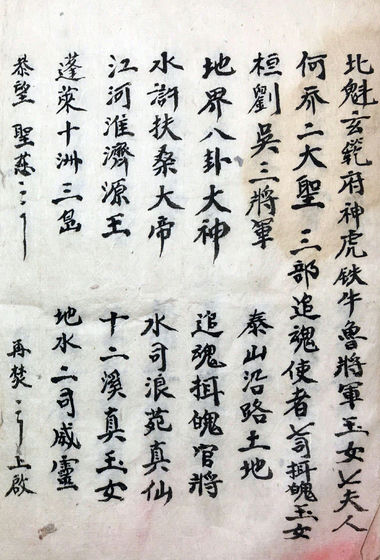 北魁玄範府神虎铁牛魯將軍玉女七夫人
何乔二大聖 三部追魂使者七司拑魄玉女
桓劉吳三將軍 泰山沿路土地
地界八卦大神 追魂拑魄官將
水府扶桑大帝 水司浪苑真仙
江河淮濟源王 十二溪真玉女
蓬萊十洲三島 地水二司威靈
恭望 聖慈 再焚 上啟